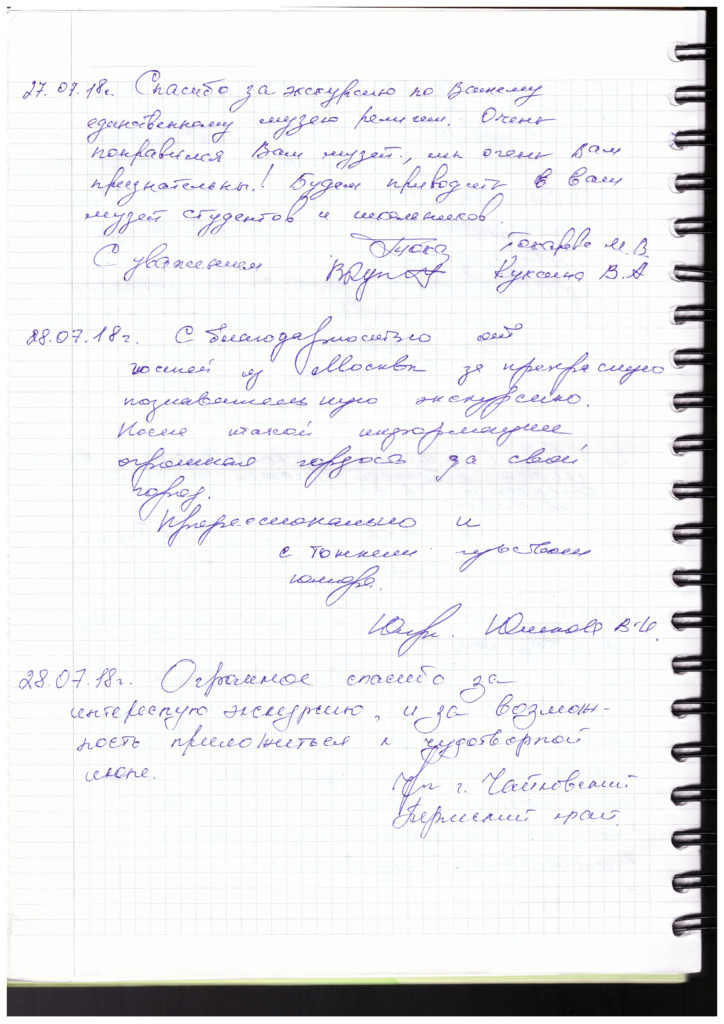 27.07.18г. Спасибо за экскурсию по Вашему
единственному музею религии. Очень
понравился Ваш музей., мы очень Вам
признательны! Будем приводить в Ваш
музей студентов и школьников.
С уважением Токарева М.В.
Куксина В.А
28.07.18г. С благодарностью от
гостей из Москвы за прекрасную
познавательную экскурсию.
После такой информации
огромная гордость за свой
город.
Профессионально и
с тонким чувством
юмора.
В.И.
28.07.18г. Огромное спасибо за
интересную экскурсию, и за возмож-
ность приложиться к чудотворной
иконе.
г. Чайковский
Пермский край.